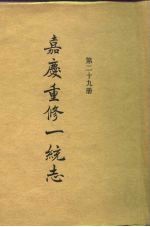 嘉慶重修一統志
第二十九册